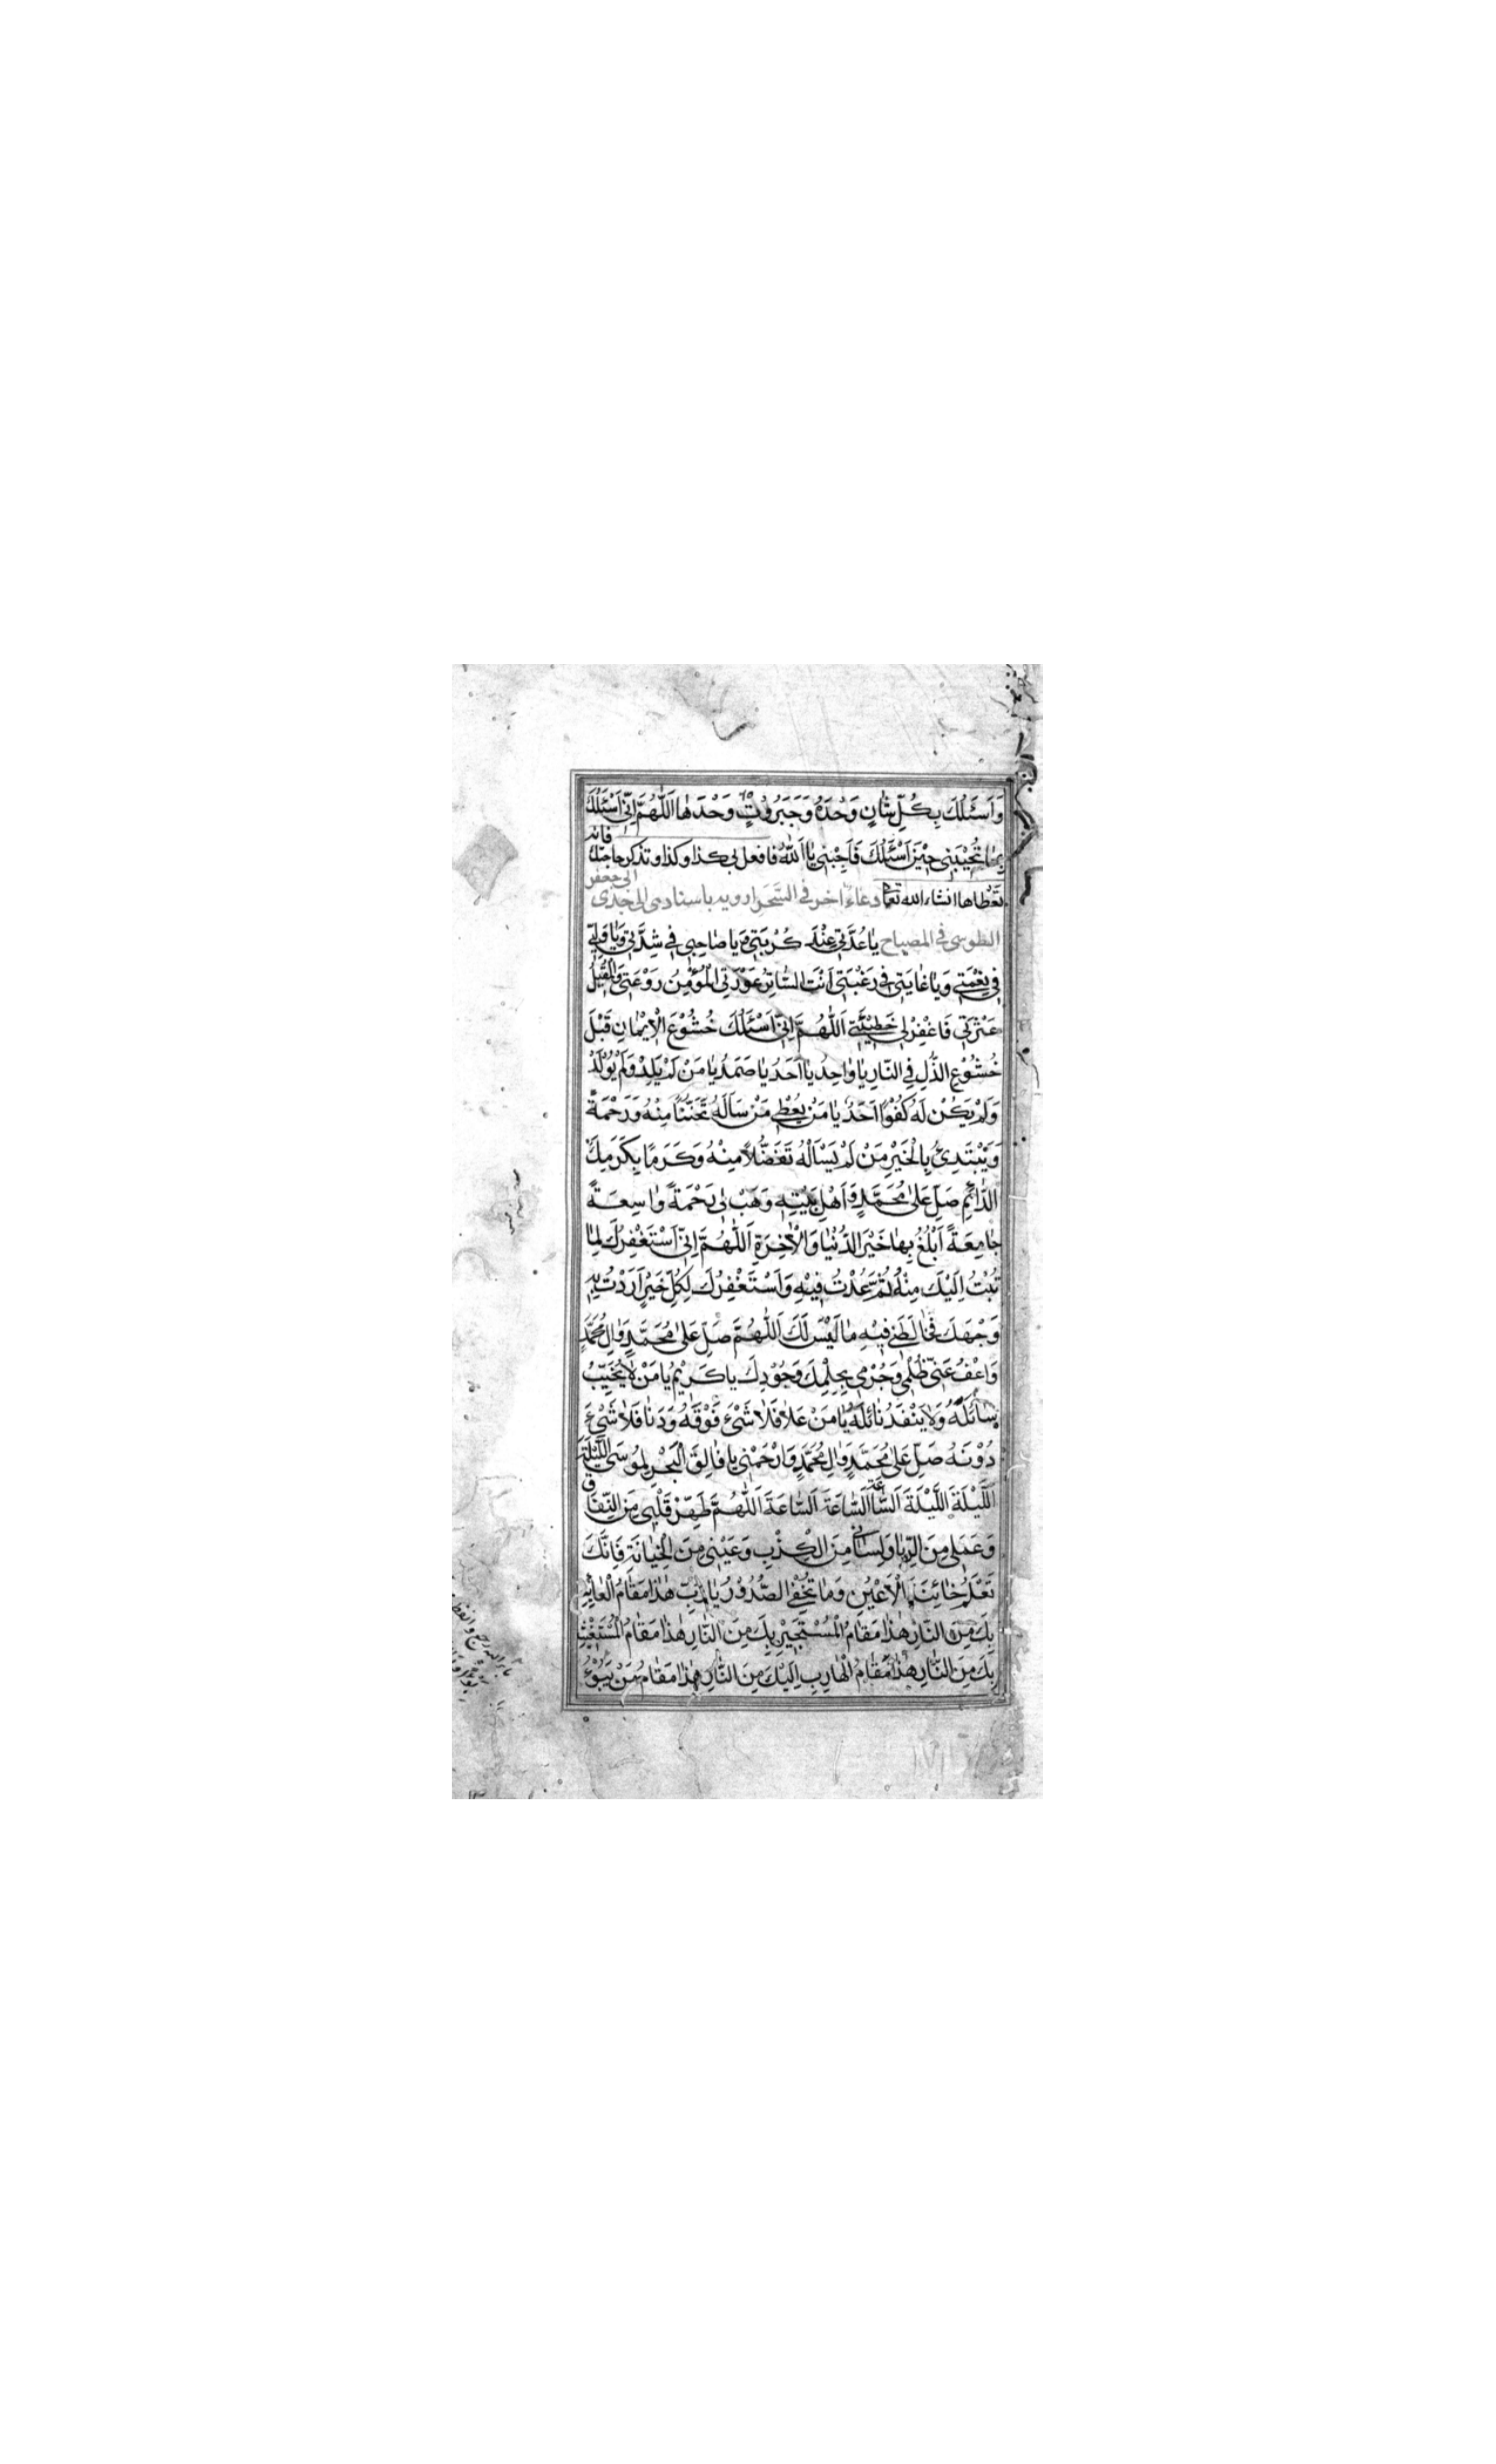 وَاَسْئَلُكَ بِكُلِّ شَانٍ وَحْدَهُ وَجَبَرُوتٍ وَحْدَهٰا اَللّٰهُمَّ اِنّٰى اَسْئَلُكَ
بِمٰا تُجٖيْبُنٖى حٖيْنَ اَسْئَلُكَ فَاَجِبْنٖى يٰا اَللّٰهُ فافعل بى كذا وكذا وتذكر حاجتك فانك
تعطاها انشاء الله تعا دعاء اخر فى السَّحَر ارويه باسنادى الى جدى الى جعفر
الطوسى فى المصباح يٰا عُدَّتٖى عِنْدَ كُرْبَتٖى وَيا صٰاحِبٖى فٖى شِدَّتٖى وَيٰا وَلِيّٖ
فٖى نِعْمَتٖى وَيٰا غٰايَتٖى فٖى رَغْبَتٖى اَنْتَ السّٰاتِرُ عَوْرَتٖى الْمُؤْمِنُ رَوْعَتٖى وَالْمُقٖيْلُ
عَثْرَتٖى فَاغْفِرْ لٖى خَطٖيْئَتٖى اَللّٰهُمَّ اِنّٖى اَسْئَلُكَ خُشُوْعَ الْاِيْمٰانِ قَبْلَ
خُشُوْعِ الذُّلِّ فِى النّٰارِ يٰا وٰاحِدُ يٰا اَحَدُ يٰا صَمَدُ يٰا مَنْ لَمْ يَلِدْ وَلَمْ يُوْلَدْ
وَلَمْ يَكُنْ لَهُ كُفُوًا اَحَدٌ يٰا مَنْ يُعْطٖى مَنْ سَاَلَهُ تَحَنُّنًا مِنْهُ وَرَحْمَةً
وَيَبْتَدِئُ بِالْخَيْرِ مَنْ لَمْ يَسْاَلْهُ تَفَضُّلًا مِنْهُ وَكَرَمًا بِكَرَمِكَ
الدّٰائِمِ صَلِّ عَلٰى مُحَمَّدٍ وَاَهْلِ بَيْتِهٖ وَهَبْ لٖى رَحْمَةً وٰاسِعَةً
جٰامِعَةً اَبْلُغُ بِهٰا خَيْرَ الدُّنْيٰا وَالْاٰخِرَةِ اَللّٰهُمَّ اِنّٖى اَسْتَغْفِرُكَ لِمٰا
تُبْتُ اِلَيْكَ مِنْهُ ثُمَّ عُدْتُ فٖيْهِ وَاَسْتَغْفِرُكَ لِكُلِّ خَيْرٍ اَرَدْتُ بِهٖ
وَجْهَكَ فَخٰالَطَنٖى فٖيْهِ مٰا لَيْسَ لَكَ اَللّٰهُمَّ صَلِّ عَلٰى مُحَمَّدٍ وَاٰلِ مُحَمَّدٍ
وَاعْفُ عَنّٖى ظُلْمٖى وَجُرْمٖى بِحِلْمِكَ وَجُوْدِكَ يٰا كَرٖيْمُ يٰا مَنْ لٰا يُخَيِّبُ
سٰائِلَهُ وَلٰا يَنْفَدُ نٰائِلُهُ يٰا مَنْ عَلٰا فَلٰا شَىْءَ فَوْقَهُ وَدَنٰا فَلٰا شَىْءَ
دُوْنَهُ صَلِّ عَلٰى مُحَمَّدٍ وَاٰلِ مُحَمَّدٍ وَارْحَمْنٖى يٰا فٰالِقَ الْبَحْرِ لِمُوْسَى اللَّيْلَةَ
اَللَّيْلَةَ اَللَّيْلَةَ اَلسّٰاعَةَ اَلسّٰاعَةَ اَلسّٰاعَةَ اَللّٰهُمَّ طَهِّرْ قَلْبٖى مِنَ النِّفٰاقِ
وَعَمَلٖى مِنَ الرِّيٰا وَلِسٰانٖى مِنَ الْكِذْبِ وَعَيْنٖى مِنَ الْخِيٰانَةِ فَاِنَّكَ
تَعْلَمُ خٰائِنَةَ الْاَعْيُنِ وَمٰا تُخْفِى الصُّدُوْرُ يٰا رَبِّ هٰذٰا مَقٰامُ الْعٰائِذِ
بِكَ مِنَ النّٰارِ هٰذٰا مَقٰامُ الْمُسْتَجٖيْرِ بِكَ مِنَ النّٰارِ هٰذٰا مَقٰامُ الْمُسْتَغٖيْثِ
بِكَ مِنَ النّٰارِ هٰذٰا مَقٰامُ الْهٰارِبِ اِلَيْكَ مِنَ النّٰارِ هٰذٰا مَقٰامُ مَنْ يَبُوْءُ